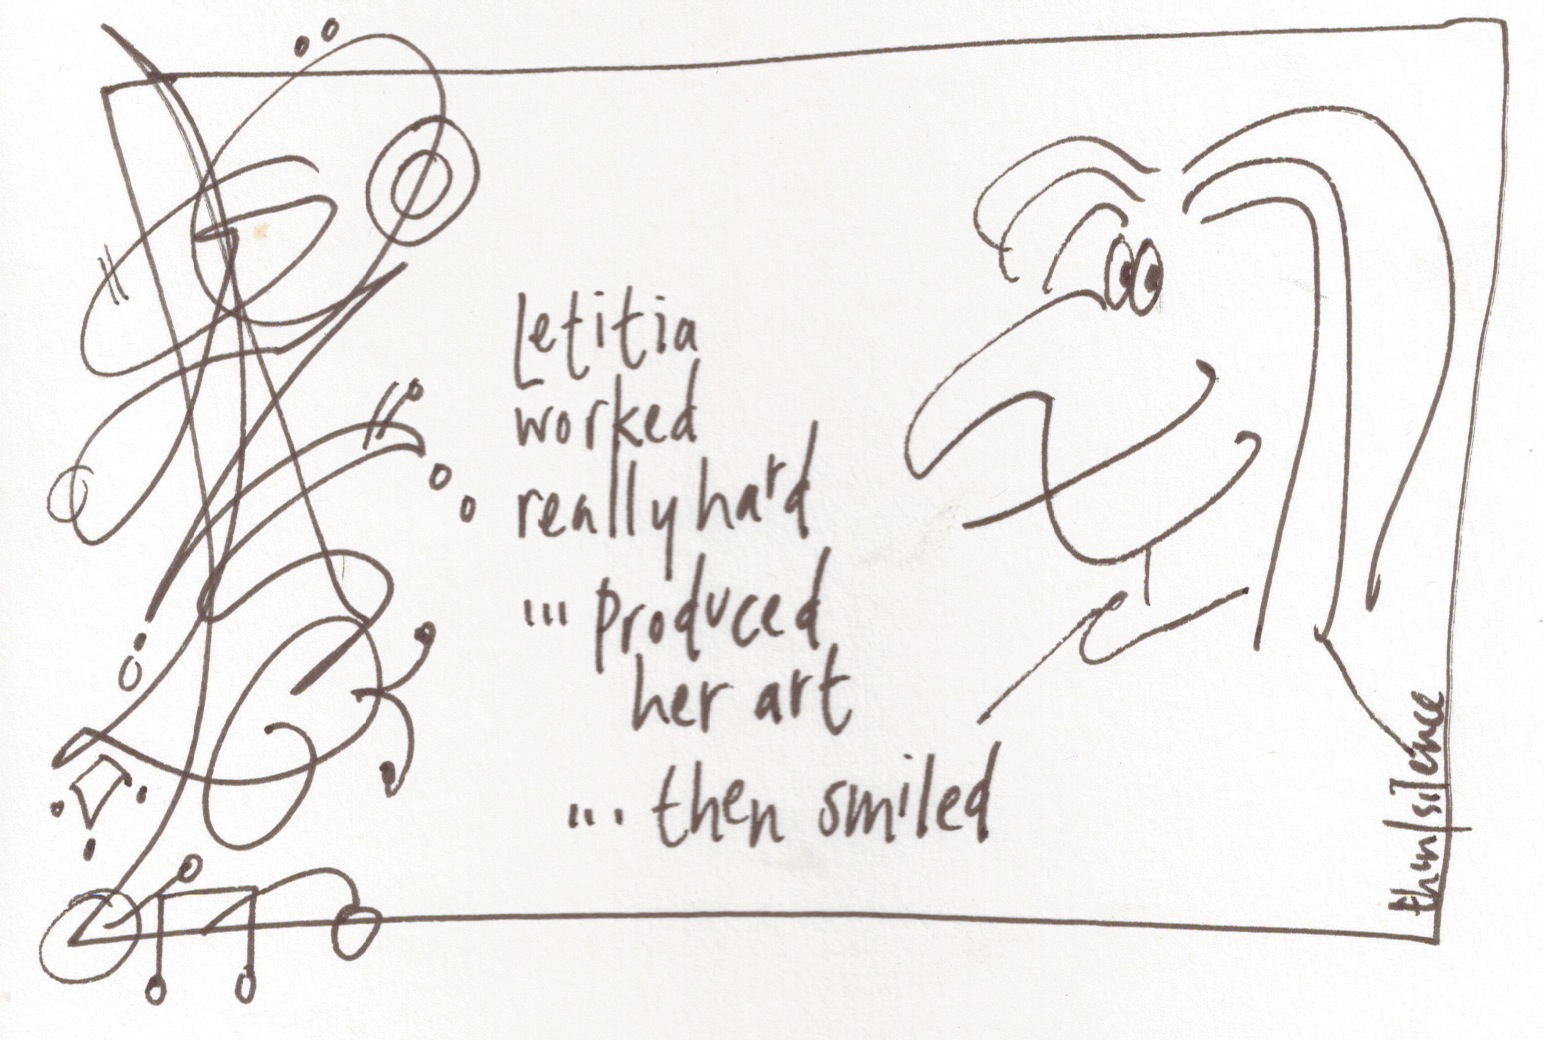 Letitia
worked
really hard
... produced
her art
... then smiled